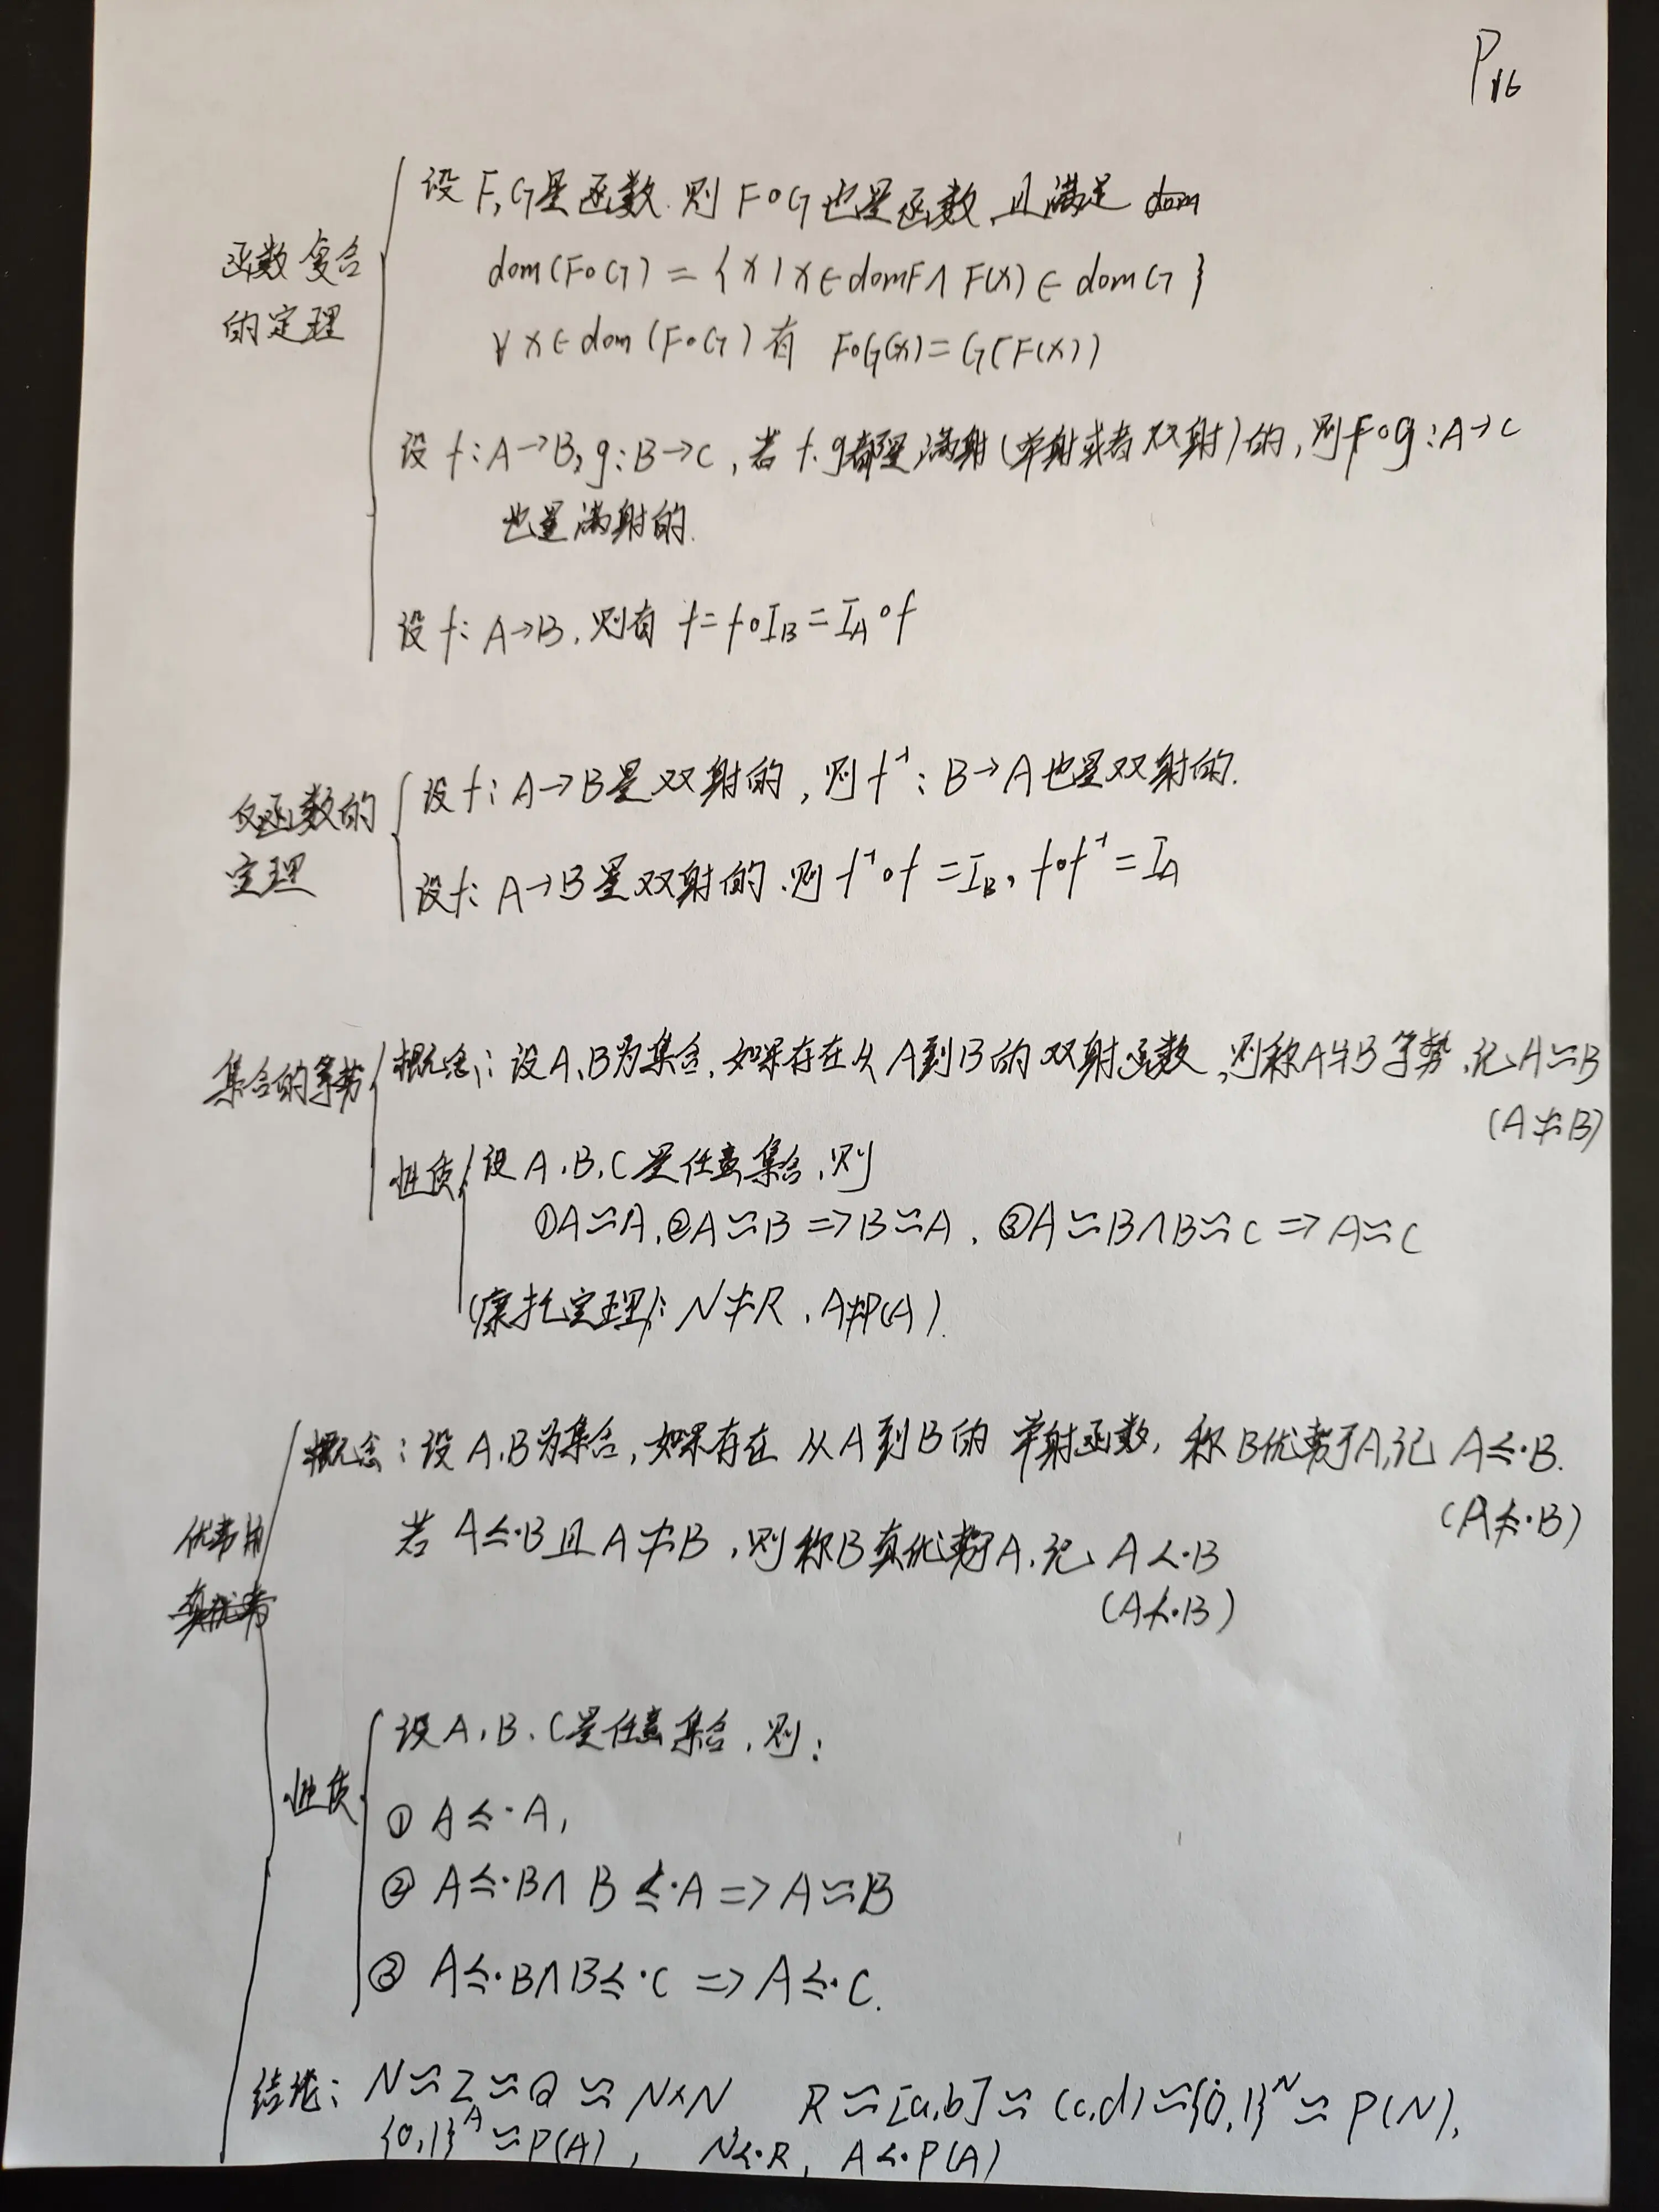 P16
函数复合
的定理
设 F,G是函数.则 F∘G也是函数,且满足 dom
dom(F∘G)={x|x∈domF∧F(x)∈domG}
∀x∈dom(F∘G)有 F∘G(x)=G(F(x))
设 f:A→B,g:B→C,若 f.g都是满射(单射或者双射)的,则f∘g:A→C
也是满射的.
设 f:A→B,则有 f=f∘I_B=I_A∘f
反函数的
定理
设f:A→B是双射的,则f⁻¹:B→A也是双射的.
设f:A→B是双射的.则f⁻¹∘f=I_B,f∘f⁻¹=I_A
集合的等势
概念:设A、B为集合,如果存在从A到B的双射函数,则称A与B等势,记A≈B
(A≉B)
性质
设A、B、C是任意集合,则
①A≈A,②A≈B=>B≈A,③A≈B∧B≈C=>A≈C
(康托定理):N≉R,A≉P(A).
优势和
真优势
概念:设A、B为集合,如果存在从A到B的单射函数,称B优势于A,记A≤·B.
(A≰·B)
若A≤·B且A≉B,则称B真优势于A,记A<·B
(A≮·B)
性质
设A、B、C是任意集合,则:
①A≤·A,
②A≤·B∧B≤·A=>A≈B
③A≤·B∧B≤·C=>A≤·C.
结论:N≈Z≈Q≈N×N R≈[a,b]≈(c,d)≈{0,1}ᴺ≈P(N),
{0,1}ᴬ≈P(A), N<·R, A<·P(A)